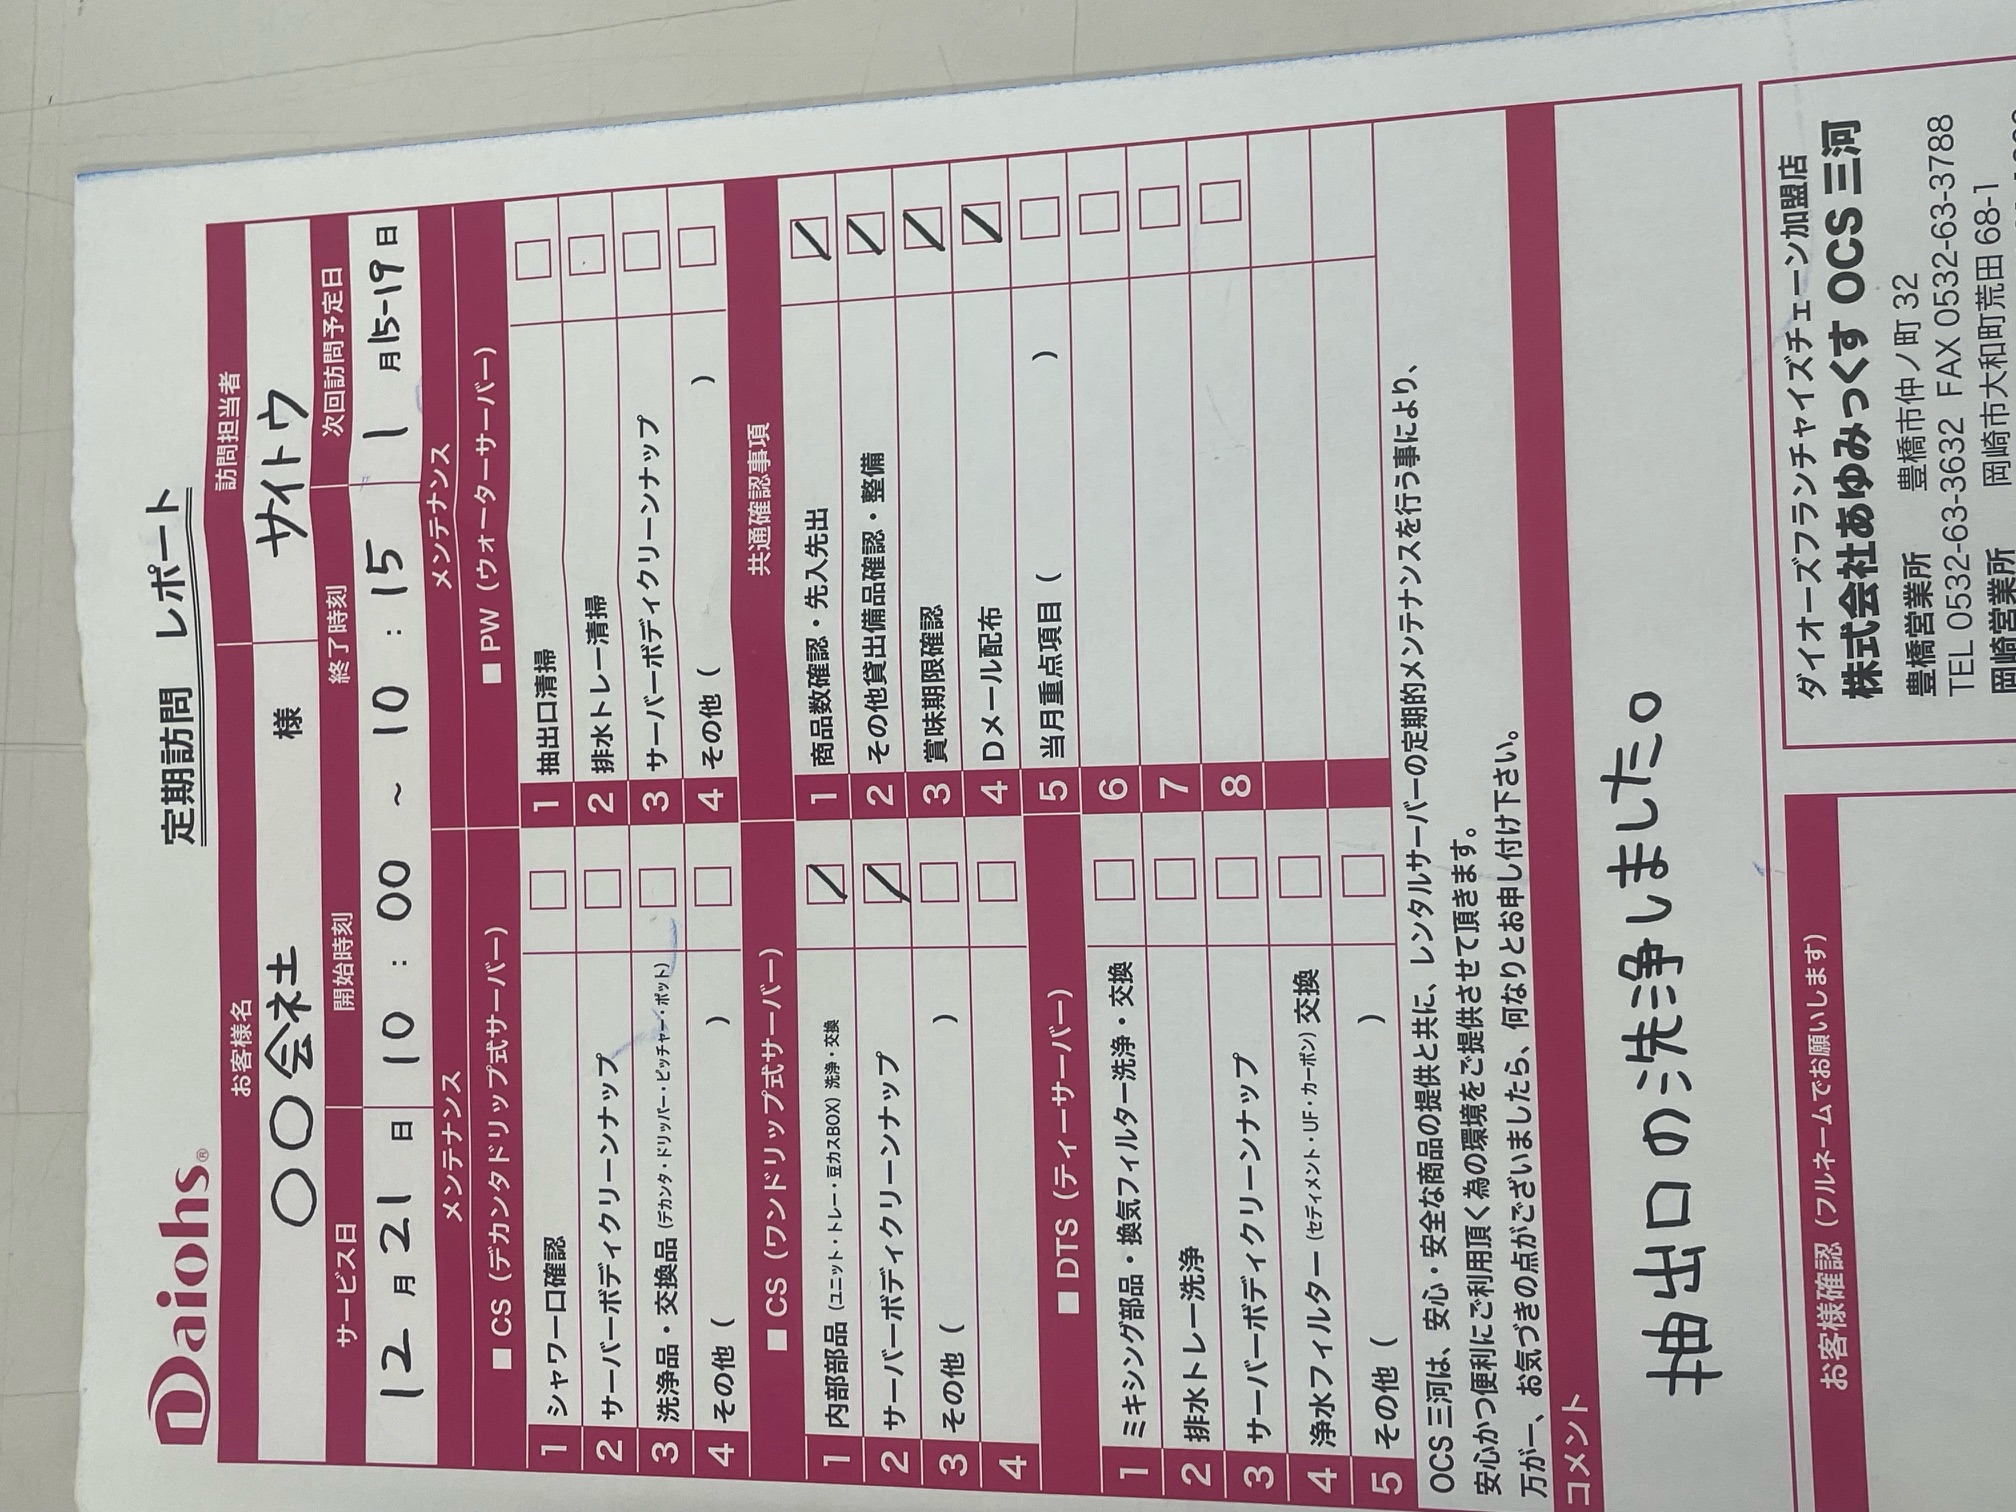 Daiohs®
定期訪問 レポート
お客様名 訪問担当者
〇〇会社 様 サイトウ
サービス日 開始時刻 終了時刻 次回訪問予定日
12月21日 10:00 ~ 10:15 1月15-19日
メンテナンス メンテナンス
■ CS（デカンタドリップ式サーバー） ■ PW（ウォーターサーバー）
1 シャワー口確認 □ 1 抽出口清掃 □
2 サーバーボディクリーンナップ □ 2 排水トレー清掃 □
3 洗浄品・交換品（デカンタ・ドリッパー・ピッチャー・ポット） □ 3 サーバーボディクリーンナップ □
4 その他（ ） □ 4 その他（ ） □
■ CS（ワンドリップ式サーバー） 共通確認事項
1 内部部品（ユニット・トレー・豆カスBOX）洗浄・交換 ☑ 1 商品数確認・先入先出 ☑
2 サーバーボディクリーンナップ ☑ 2 その他貸出備品確認・整備 ☑
3 その他（ ） □ 3 賞味期限確認 ☑
4 □ 4 Dメール配布 ☑
■ DTS（ティーサーバー） 5 当月重点項目（ ） □
1 ミキシング部品・換気フィルター洗浄・交換 □ 6 □
2 排水トレー洗浄 □ 7 □
3 サーバーボディクリーンナップ □ 8 □
4 浄水フィルター（セディメント・UF・カーボン）交換 □
5 その他（ ） □
OCS三河は、安心・安全な商品の提供と共に、レンタルサーバーの定期的メンテナンスを行う事により、
安心かつ便利にご利用頂く為の環境をご提供させて頂きます。
万が一、お気づきの点がございましたら、何なりとお申し付け下さい。
コメント
抽出口の洗浄しました。
お客様確認（フルネームでお願いします）
ダイオーズフランチャイズチェーン加盟店
株式会社あゆみっくす OCS 三河
豊橋営業所 豊橋市仲ノ町 32
TEL 0532-63-3632 FAX 0532-63-3788
岡崎営業所 岡崎市大和町荒田 68-1